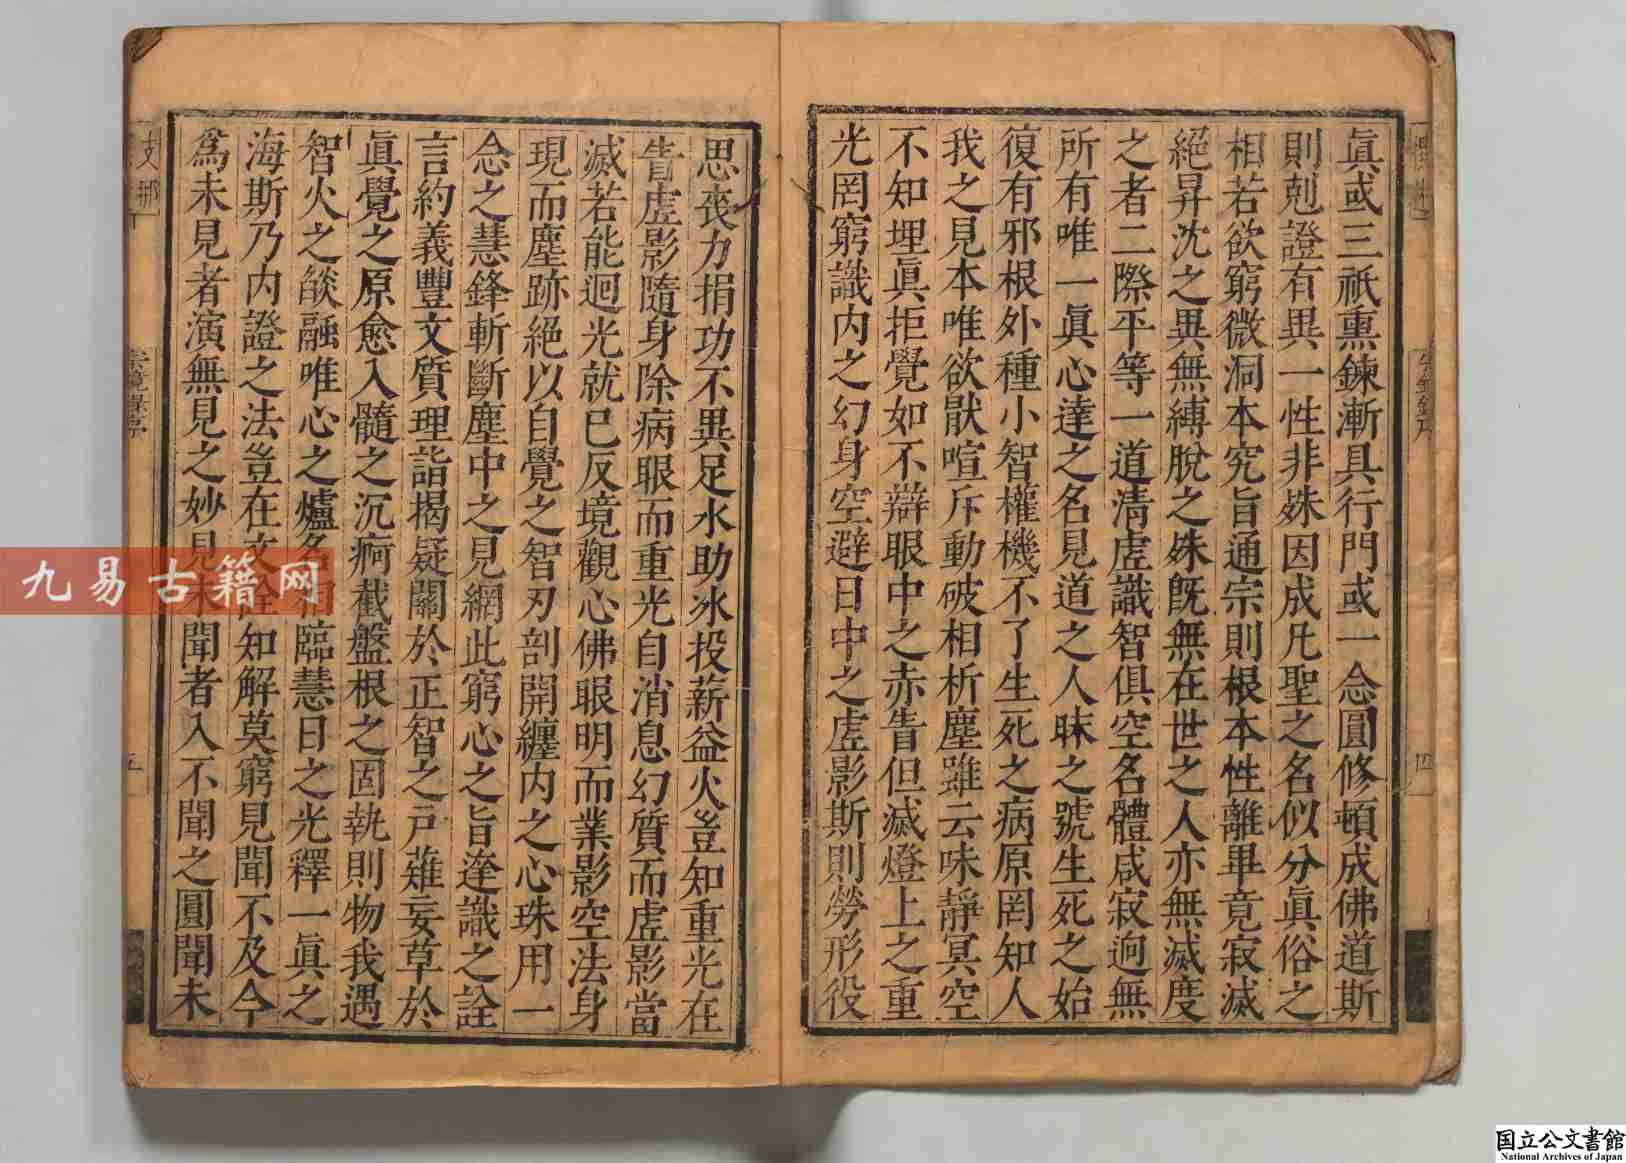 眞或三祇熏鍊漸具行門或一念圓修頓成佛道斯
則剋證有異一性非殊因成凡聖之名似分眞俗之
相若欲窮微洞本究旨通宗則根本性離畢竟寂滅
絕昇沈之異無縛脫之殊旣無在世之人亦無滅度
之者二際平等一道清虛識智俱空名體咸寂迥無
所有唯一眞心達之名見道之人昧之號生死之始
復有邪根外種小智權機不了生死之病原罔知人
我之見本唯欲猒喧斥動破相析塵雖云味靜冥空
不知埋眞拒覺如不辯眼中之赤眚但滅燈上之重
光罔窮識內之幻身空避日中之虛影斯則勞形役
思喪力捐功不異足水助冰投薪益火豈知重光在
眚虛影隨身除病眼而重光自消息幻質而虛影當
滅若能迴光就己反境觀心佛眼明而業影空法身
現而塵跡絕以自覺之智刃剖開纏內之心珠用一
念之慧鋒斬斷塵中之見網此窮心之旨達識之詮
言約義豐文質理詣揭疑關於正智之戶薙妄草於
眞覺之原愈入髓之沉痾截盤根之固執則物我遇
智火之焰融唯心之爐名相臨慧日之光釋一眞之
海斯乃內證之法豈在文詮知解莫窮見聞不及今
爲未見者演無見之妙見未聞者入不聞之圓聞未
支那
宗鏡錄序
五
宗鏡錄序
四
九易古籍网
国立公文書館
National Archives of Japan